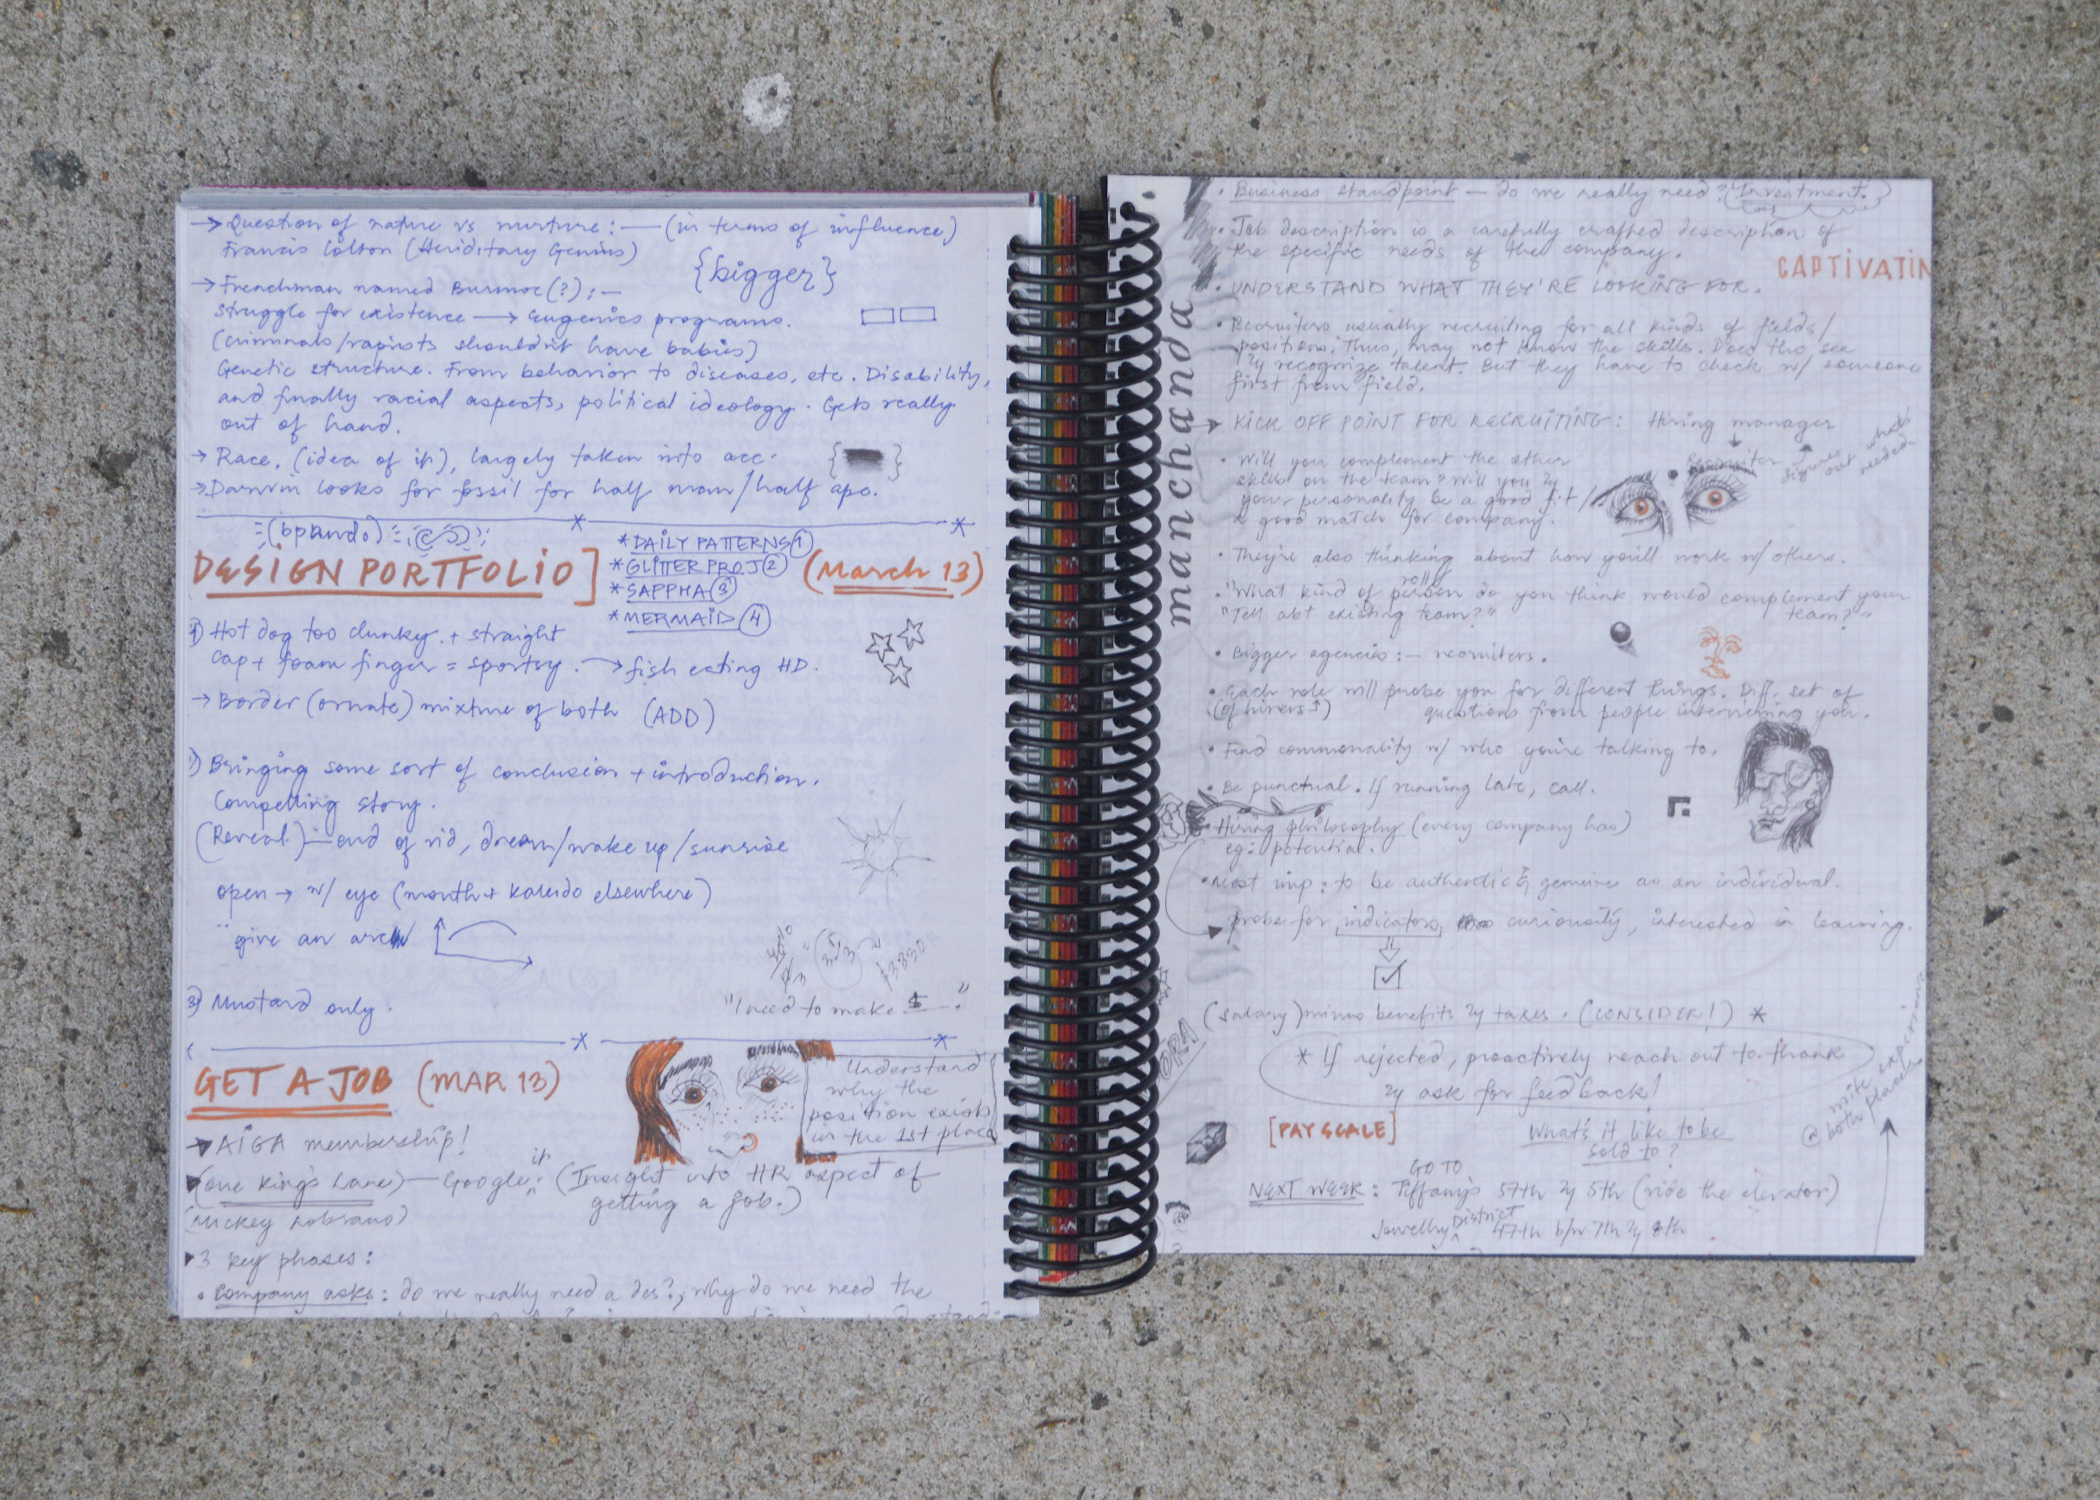 → Question of nature vs nurture: — (in terms of influence)
Francis Galton (Heriditary Genius)
{bigger}
→ Frenchman named Burmoc(?): —
struggle for existence → Eugenics programs.
(criminals/rapists shouldn't have babies)
Genetic structure. From behavior to diseases, etc. Disability,
and finally racial aspects, political ideology. Gets really
out of hand.
→ Race, (idea of it), largely taken into acc.
→ Darwin looks for fossil for half man/half ape.
(bpando)
DESIGN PORTFOLIO] (March 13)
* DAILY PATTERNS 1
* GLITTER PROJ 2
* SAPPHA 3
* MERMAID 4
1) Hot dog too clunky. + straight
cap + foam finger = sportsy. → fish eating HD.
→ Border (ornate) mixture of both (ADD)
Bringing some sort of conclusion + introduction.
Compelling story.
(Reveal) — end of vid, dream/wake up/sunrise
open → w/ eye (mouth + kaleido elsewhere)
give an arc
3) Mustard only.
"I need to make $ ."
GET A JOB (MAR 13)
Understand
why the
position exists
in the 1st place
AIGA membership!
(One King's Lane) — Google: it (Insight into HR aspect of
getting a job.)
(Mickey Lobrano)
3 key phases:
• Company asks: do we really need a des?, why do we need the
manchanda
• Business standpoint — do we really need? (Investment.)
• Job description is a carefully crafted description of
the specific needs of the company.
CAPTIVATIN
• UNDERSTAND WHAT THEY'RE LOOKING FOR.
• Recruiters usually recruiting for all kinds of fields/
positions. Thus, may not know the skills. Does tho see
& recognize talent. But they have to check w/ someone
first from field.
→ KICK OFF POINT FOR RECRUITING: Hiring manager
Recruiter
figures out what's needed
• Will you complement the other
skills on the team? Will you &
your personality be a good fit/
a good match for company.
• They're also thinking about how you'll work w/ others.
• "What kind of person do you think would complement your
team?"
"Tell abt existing team?"
• Bigger agencies: — recruiters.
• Each role will probe you for different things. Diff. set of
(of hirers) questions from people interviewing you.
• Find commonality w/ who you're talking to.
• Be punctual. If running late, call.
• Hiring philosophy (every company has)
eg: potential.
• Most imp: to be authentic & genuine as an individual.
probe for indicators, curiosity, interested in learning.
(salary) minus benefits & taxes. (CONSIDER!) *
* If rejected, proactively reach out to thank
& ask for feedback!
[PAY SCALE]
What's it like to be
sold to?
@ both places
NEXT WEEK: GO TO Tiffany's 57th & 5th (ride the elevator)
Jewellry District 47th b/w 7th & 8th